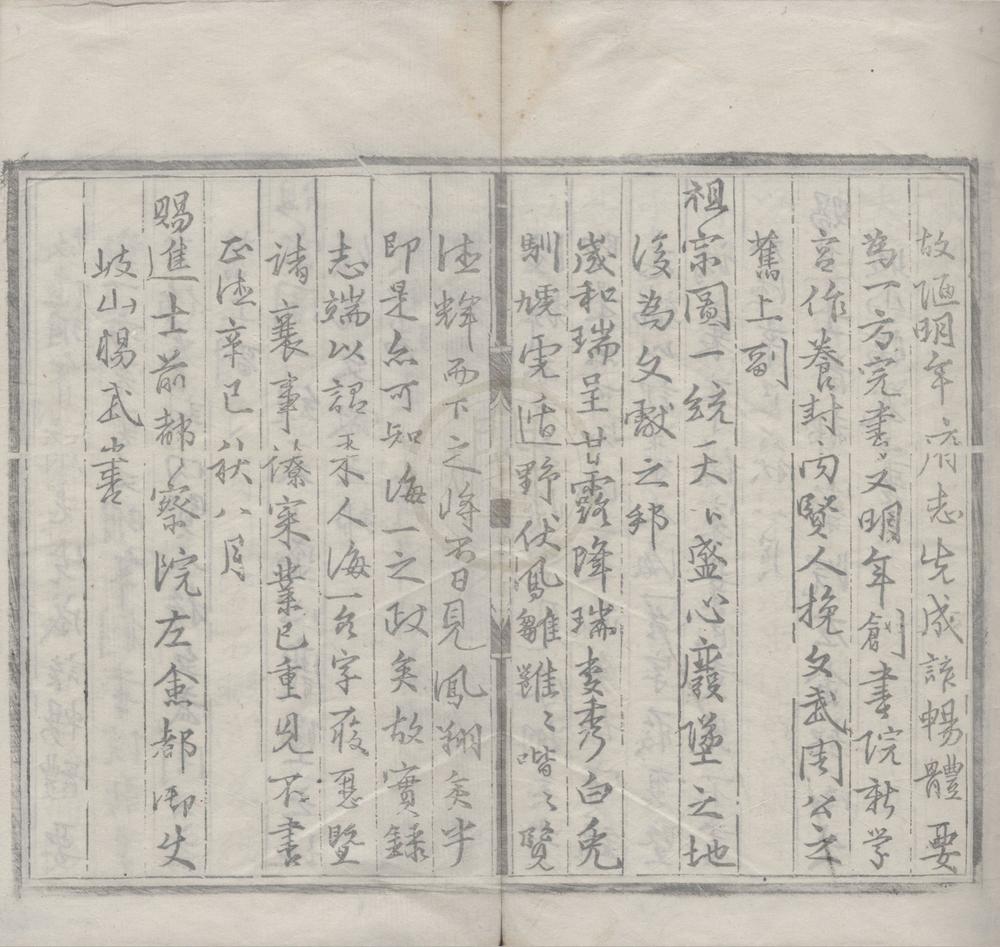 故陋明年府志先成該暢體要
為一方完書又明年創書院新学
宮作養封內賢人挽文武周公之
舊上副
祖宗圖一統天下盛心廢墜之地
復為文獻之邦
歲和瑞呈甘露降瑞麥秀白兔
馴虎遁野伏鳳雛雝〻喈〻覽
德輝而下之將不日見鳳翔矣半
即是亦可知海一之政矣故實錄
志端以謂來人海一名字履歷暨
諸襄事僚寀業已重見不書
正德辛巳秋八月
賜進士前都察院左僉都御史
岐山楊武書